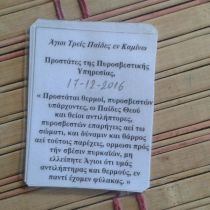 Άγιοι Τρείς Παίδες εν Καμίνω
Προστάτες της Πυροσβεστικής
Υπηρεσίας,
17-12-2016
« Προστάται θερμοί, πυροσβεστών
υπάρχοντες, ω Παίδες Θεού
και θείοι αντιλήπτορες,
πυροσβεστών επαρήγεις αεί τω
σώματι, και δύναμιν και θάρρος
αεί τούτοις παρέχεις, ορμωσι προς
τήν σβέσιν πυρκαϊών, μη
ελλείπητε Άγιοι ότι υμάς
αντιλήπτηρας και θερμούς, εν
παντί έχομεν φύλακας. »